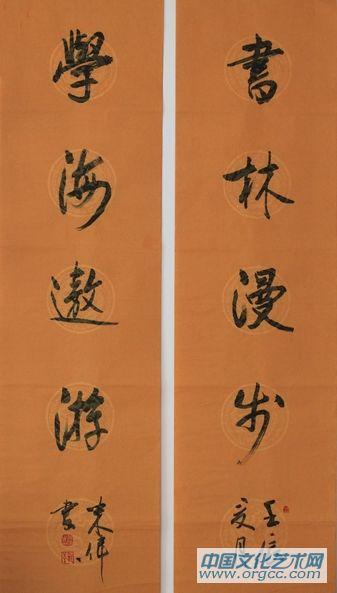 書林漫步
學海遨游
書
中国文化艺术网
www.orgcc.com